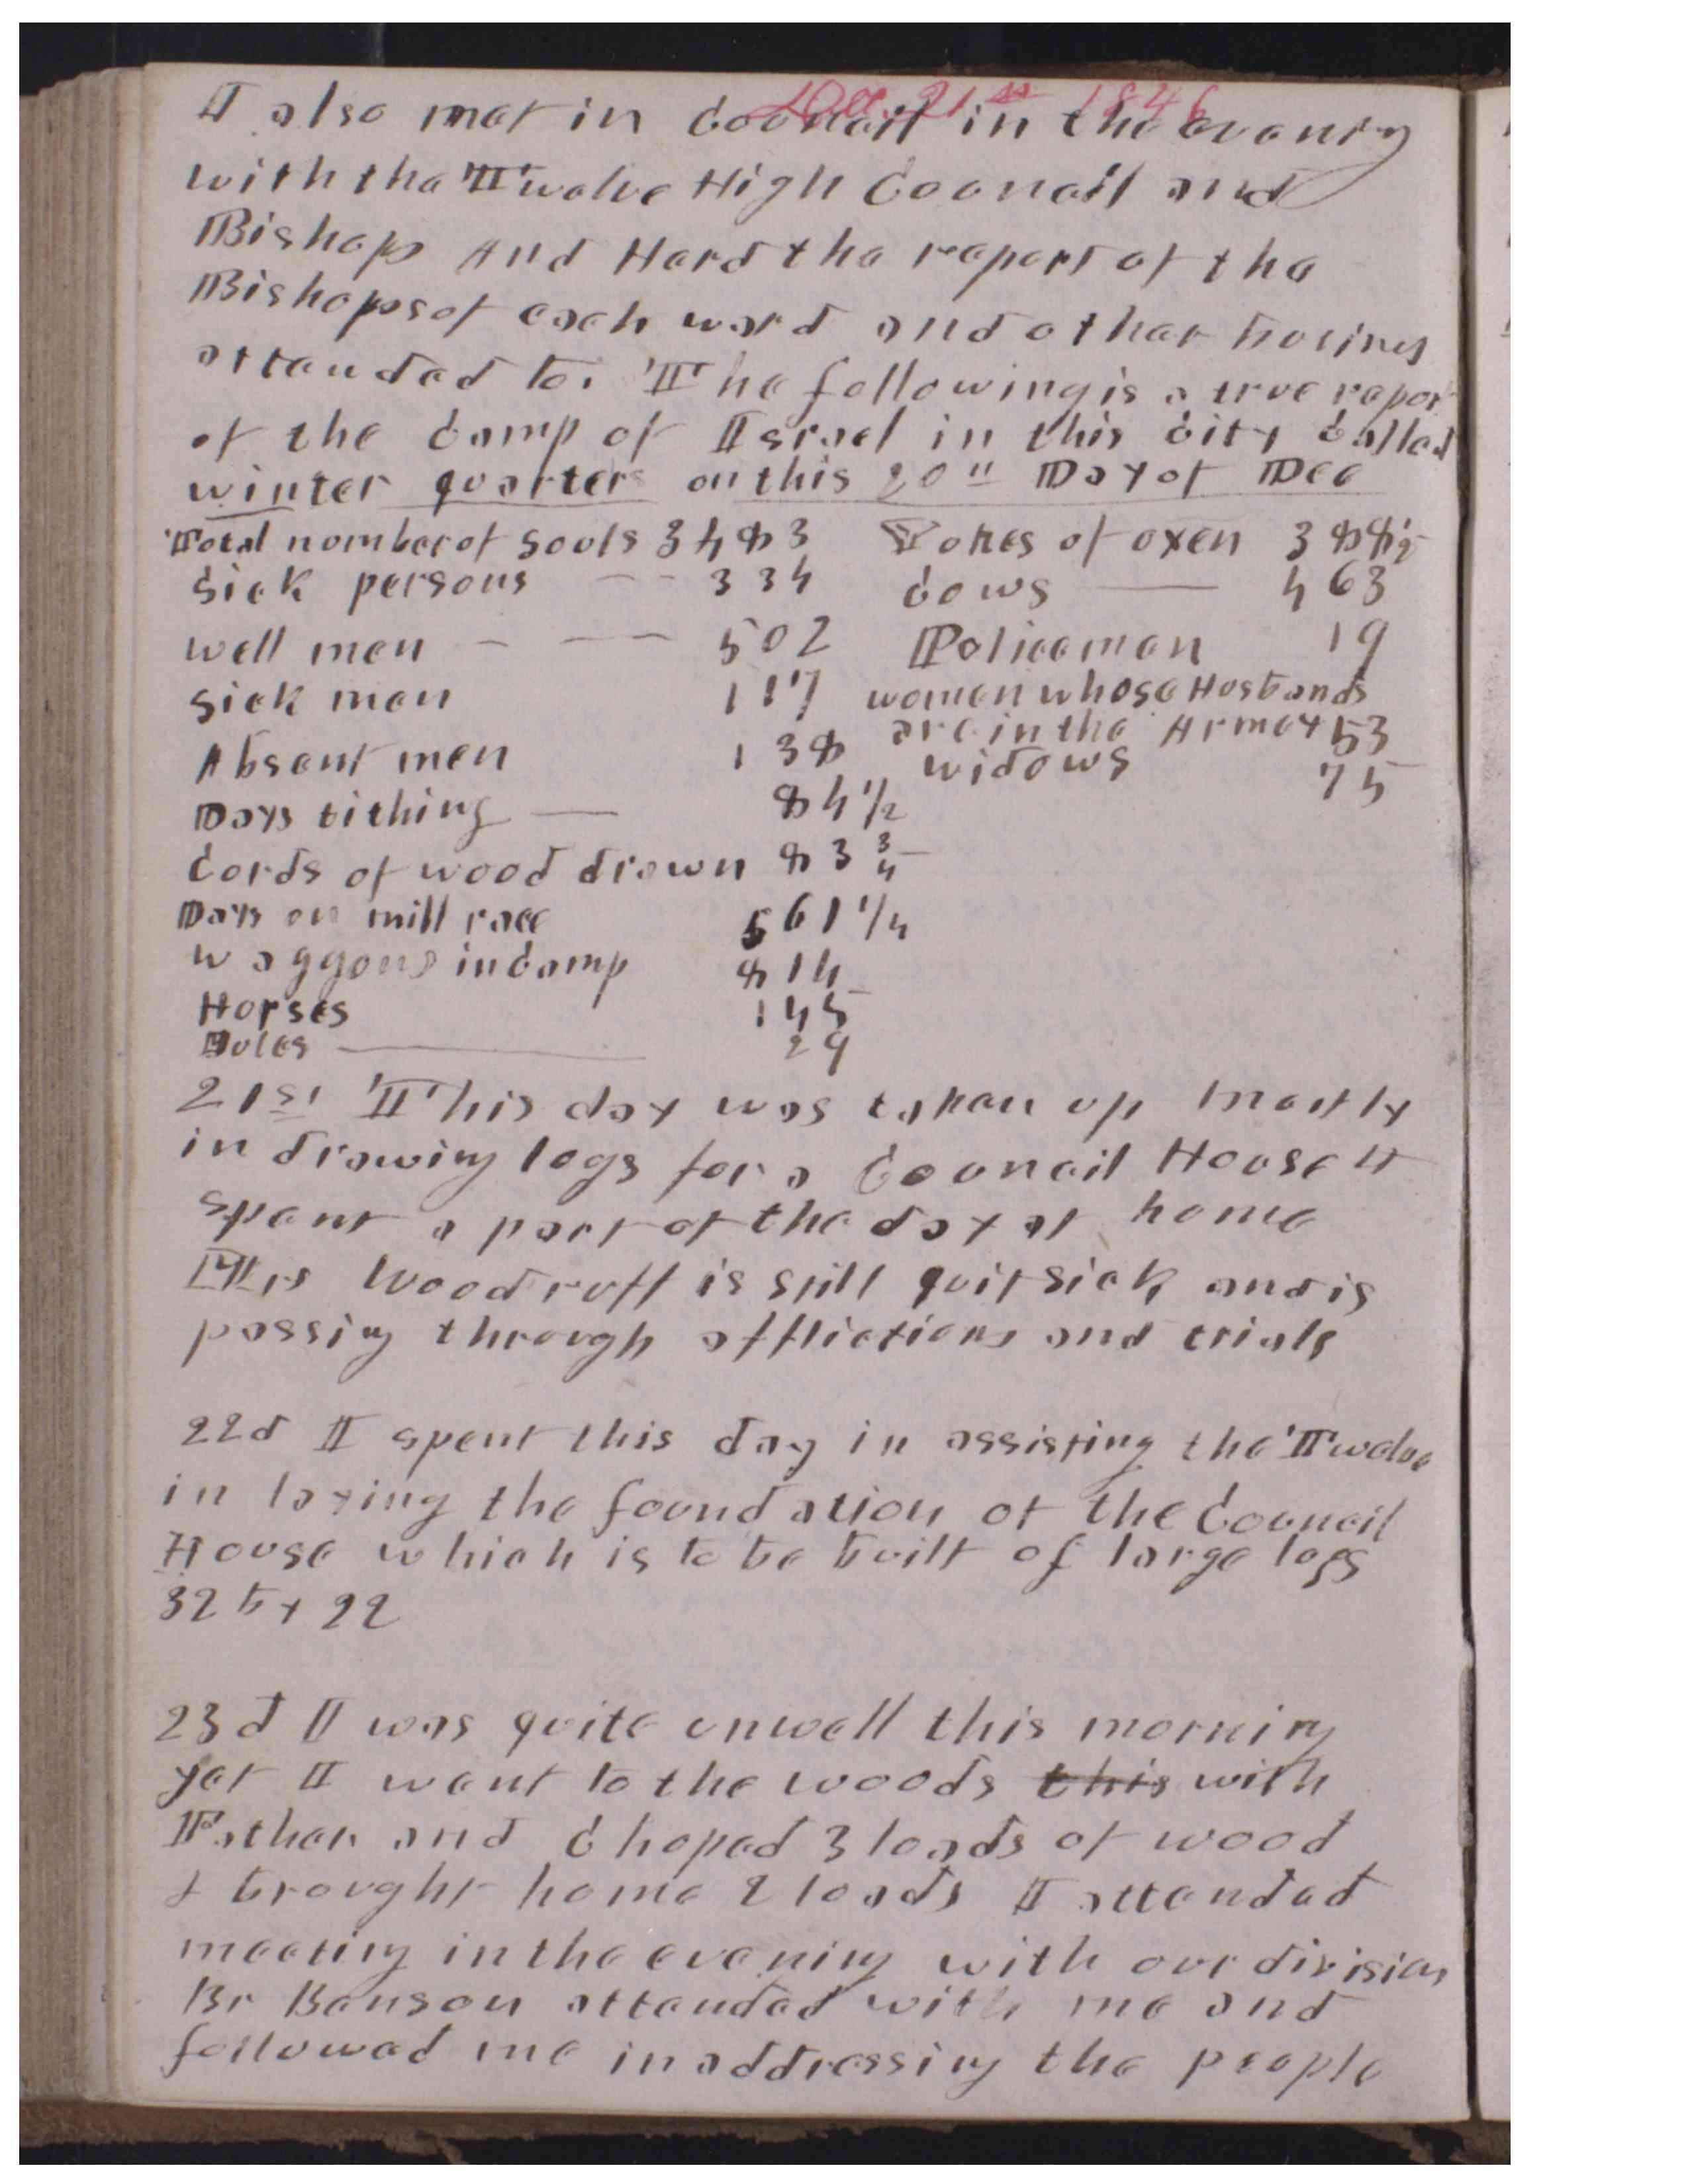 Dec. 21st 1846
I also met in Council in the evening
with the Twelve High Council and
Bishop And Hard the report of the
Bishops of each ward and other busines
attended to. The following is a true repor
of the Camp of Israel in this City Called
winter quarters on this 20th Day of Dec
Total number of Souls 3483 Yokes of oxen 388½
Sick persons 334 Cows 463
well men 502 Policemen 19
Sick men 117 women whose Husbands
are in the Armey 53
Absent men 138 widows 75
Days tithing 84 1/2
Cords of wood drawn 83 3/4
Days on mill race 561 1/4
waggons in Camp 814
Horses 145
Mules 29
21st This day was taken up mostly
in drawing logs for a Council House I
spent a part of the day at home
Mrs Woodruff is still quit sick and is
passing through afflictions and trials
22d I spent this day in assisting the Twelve
in laying the foundation of the Council
House which is to be built of large logs
32 by 22
23d I was quite unwell this morning
yet I went to the woods this with
Father and Choped 3 loads of wood
& brought home 2 loads I attended
meeting in the evening with our division
Br Benson attended with me and
followed me in addressing the people